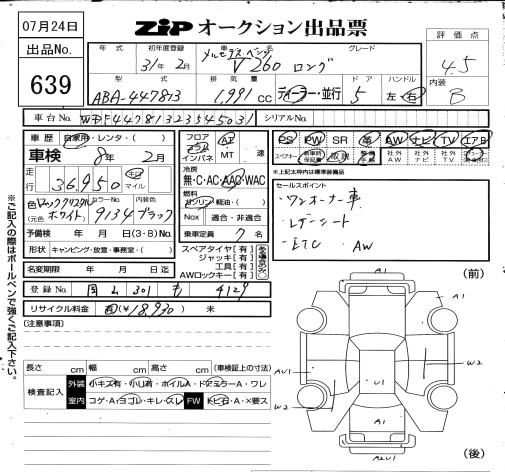 07月24日
出品No.
639
ZiP オークション出品票
年式 初年度登録 車名 グレード
31年 2月 メルセデス・ベンツ V260 ロング
評価点
4.5
内装
B
型式 排気量 ドア ハンドル
ABA-447813 1,991cc ディーラー・並行 5 左・右
車台No. WDF44781323545031 シリアルNo.
車歴 自家用・レンタ・( )
車検 8年 2月
走行 36,950 キロ マイル
色 ロッククリスタルホワイト カラーNo. 9134 内装色 ブラック
(元色 )
予備検 年 月 日(3・8)No.
形状 キャンピング・放宣・事務室・( )
名変期限 年 月 日迄
登録No. 岡山 301 も 4129
リサイクル料金 有(¥18,930) 未
フロア コラム インパネ AT MT. 速
冷房 無・C・AC・AAC・WAC
燃料 ガソリン・軽油・( )
Nox 適合・非適合
乗車定員 7 名
スペアタイヤ[有]
ジャッキ[有]
工具[有]
AWロックキー[有]
PS PW SR 革 AW ナビ TV エアB
スペアキー 新車時保証書 取説 社外AW 社外ナビ 社外TV
※上記太枠内は標準装備品
セールスポイント
・ワンオーナー車
・レザーシート
・ETC AW
[注意事項]
長さ cm 幅 cm 高さ cm (車検証上の寸法)
検査記入 外装 小キズ有・小凹有・ホイルA・ドアミラーA・ワレ
室内 コゲ・A・ヨゴレ・キレ・スレ FW トビ石・A・X要ス
※ご記入の際はボールペンで強くご記入下さい。
(前)
A1
A1
AU1
W2
W2
U1
A1
A2U1
(後)